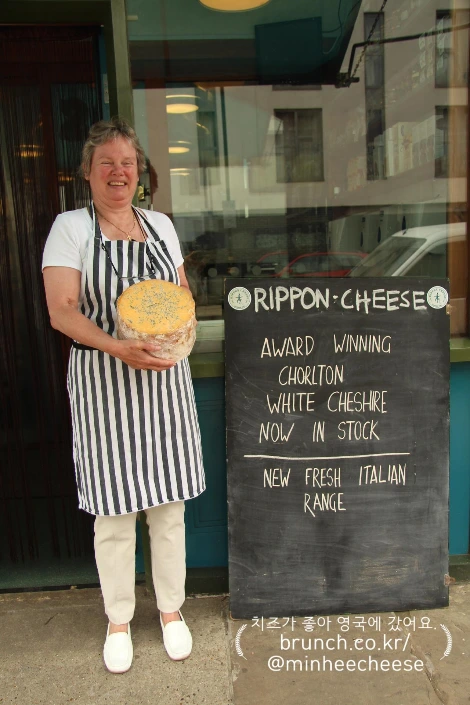 RIPPON·CHEESE
AWARD WINNING
CHORLTON
WHITE CHESHIRE
NOW IN STOCK
NEW FRESH ITALIAN
RANGE
치즈가 좋아 영국에 갔어요.
brunch.co.kr/
@minheecheese